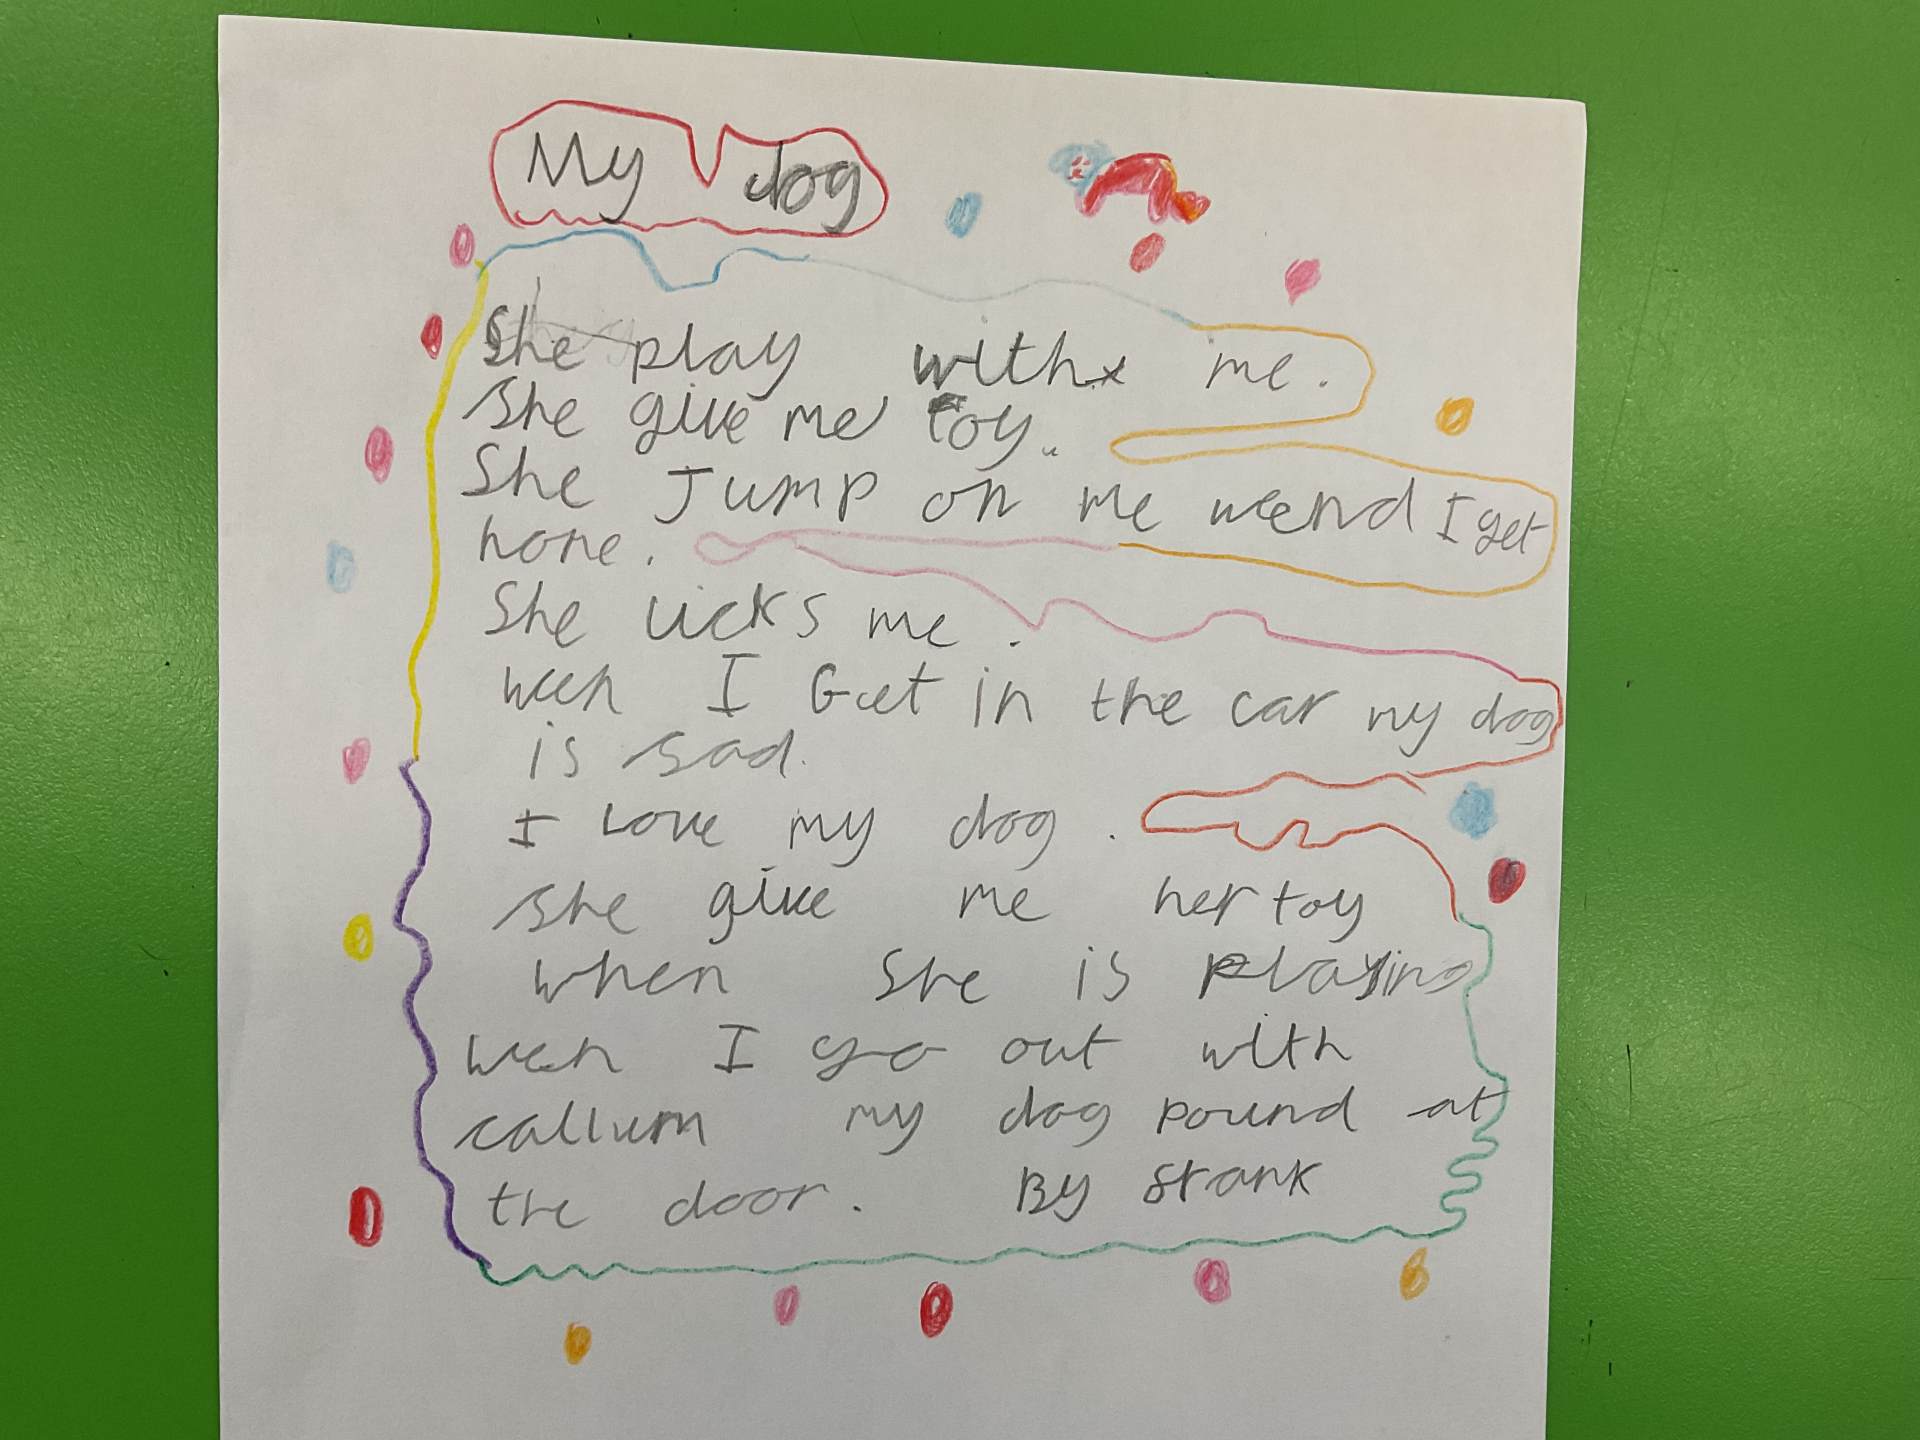 My dog
She play with me.
She give me toy.
She Jump on me weend I get
home.
She licks me.
ween I Get in the car my dog
is sad.
I Love my dog.
she give me her toy
when she is playing
ween I go out with
callum my dog pound at
the door. By Strank